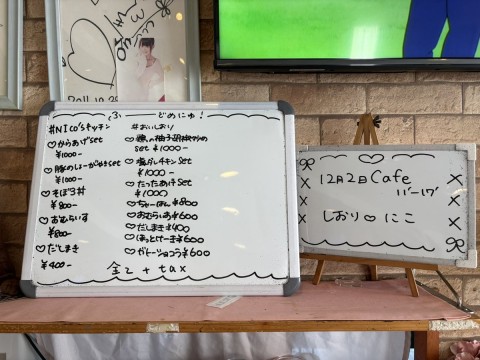 2011.10.28
ふーどめにゅ!
#NICO'sキッチン
♡からあげset
¥1000-
♡豚のしょーがやきset
¥1000-
♡そぼろ丼
¥800-
♡おむらいす
¥800-
♡だしまき
¥400-
#おいしおり
set ¥1000-
♡塩だれチキンset
¥1000-
♡たったあげset
¥1000
♡ちゃーはん¥800
♡おむらいす¥600
♡だしまき¥400
♡ほっとけーき¥600
♡ガトーショコラ¥600
全て+tax
12月2日Cafe
11-17
しおり♡にこ